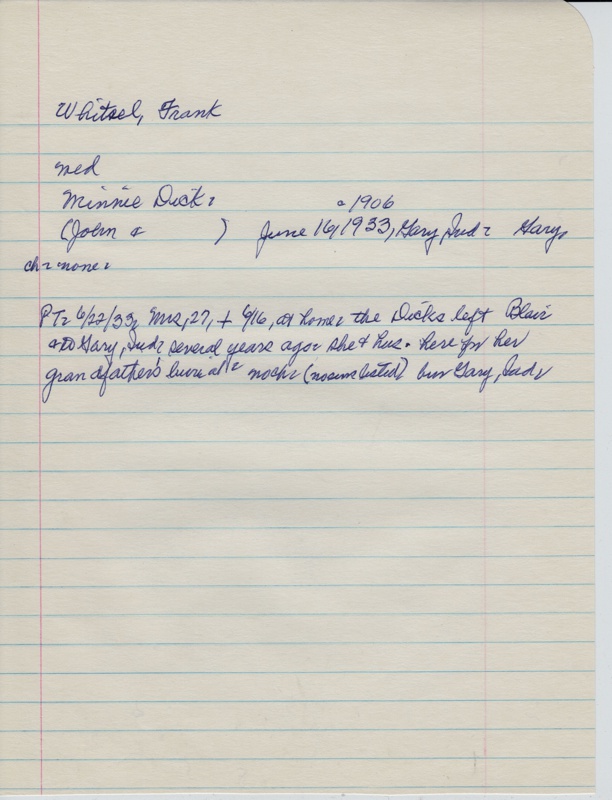 Whitsel, Frank
med
Minnie Dick.
c 1906
(John &           )     June 16, 1933, Gary, Ind.     Gary,
ch: none.
PT: 6/22/33, Mrs, 27, + 6/16, at home. the Dicks left Blair
to Gary, Ind, several years ago. she & hus. here for her
grandfather's burial. noch. (no surv listed) bur Gary, Ind,